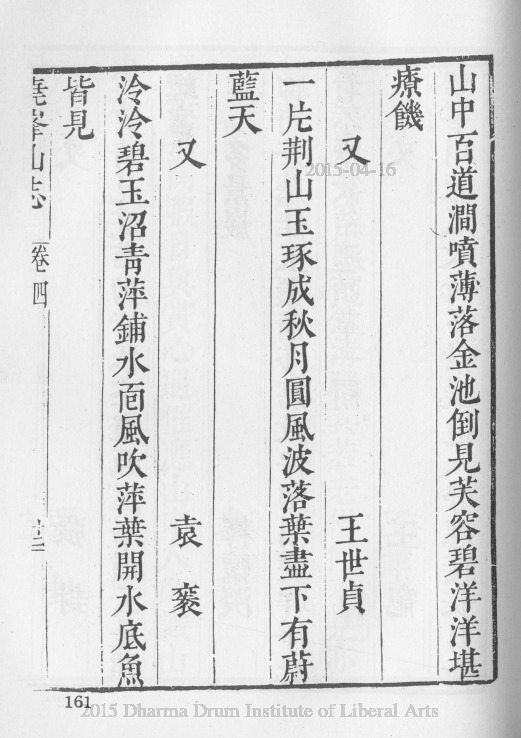 山中百道澗噴薄落金池倒見芙容碧洋洋堪
療饑
又 王世貞
一片荆山玉琢成秋月圓風波落葉盡下有蔚
藍天
又 袁褧
泠泠碧玉沼青萍鋪水面風吹萍葉開水底魚
皆見
堯峯山志 卷四
2015-04-16
161
2015 Dharma Drum Institute of Liberal Arts